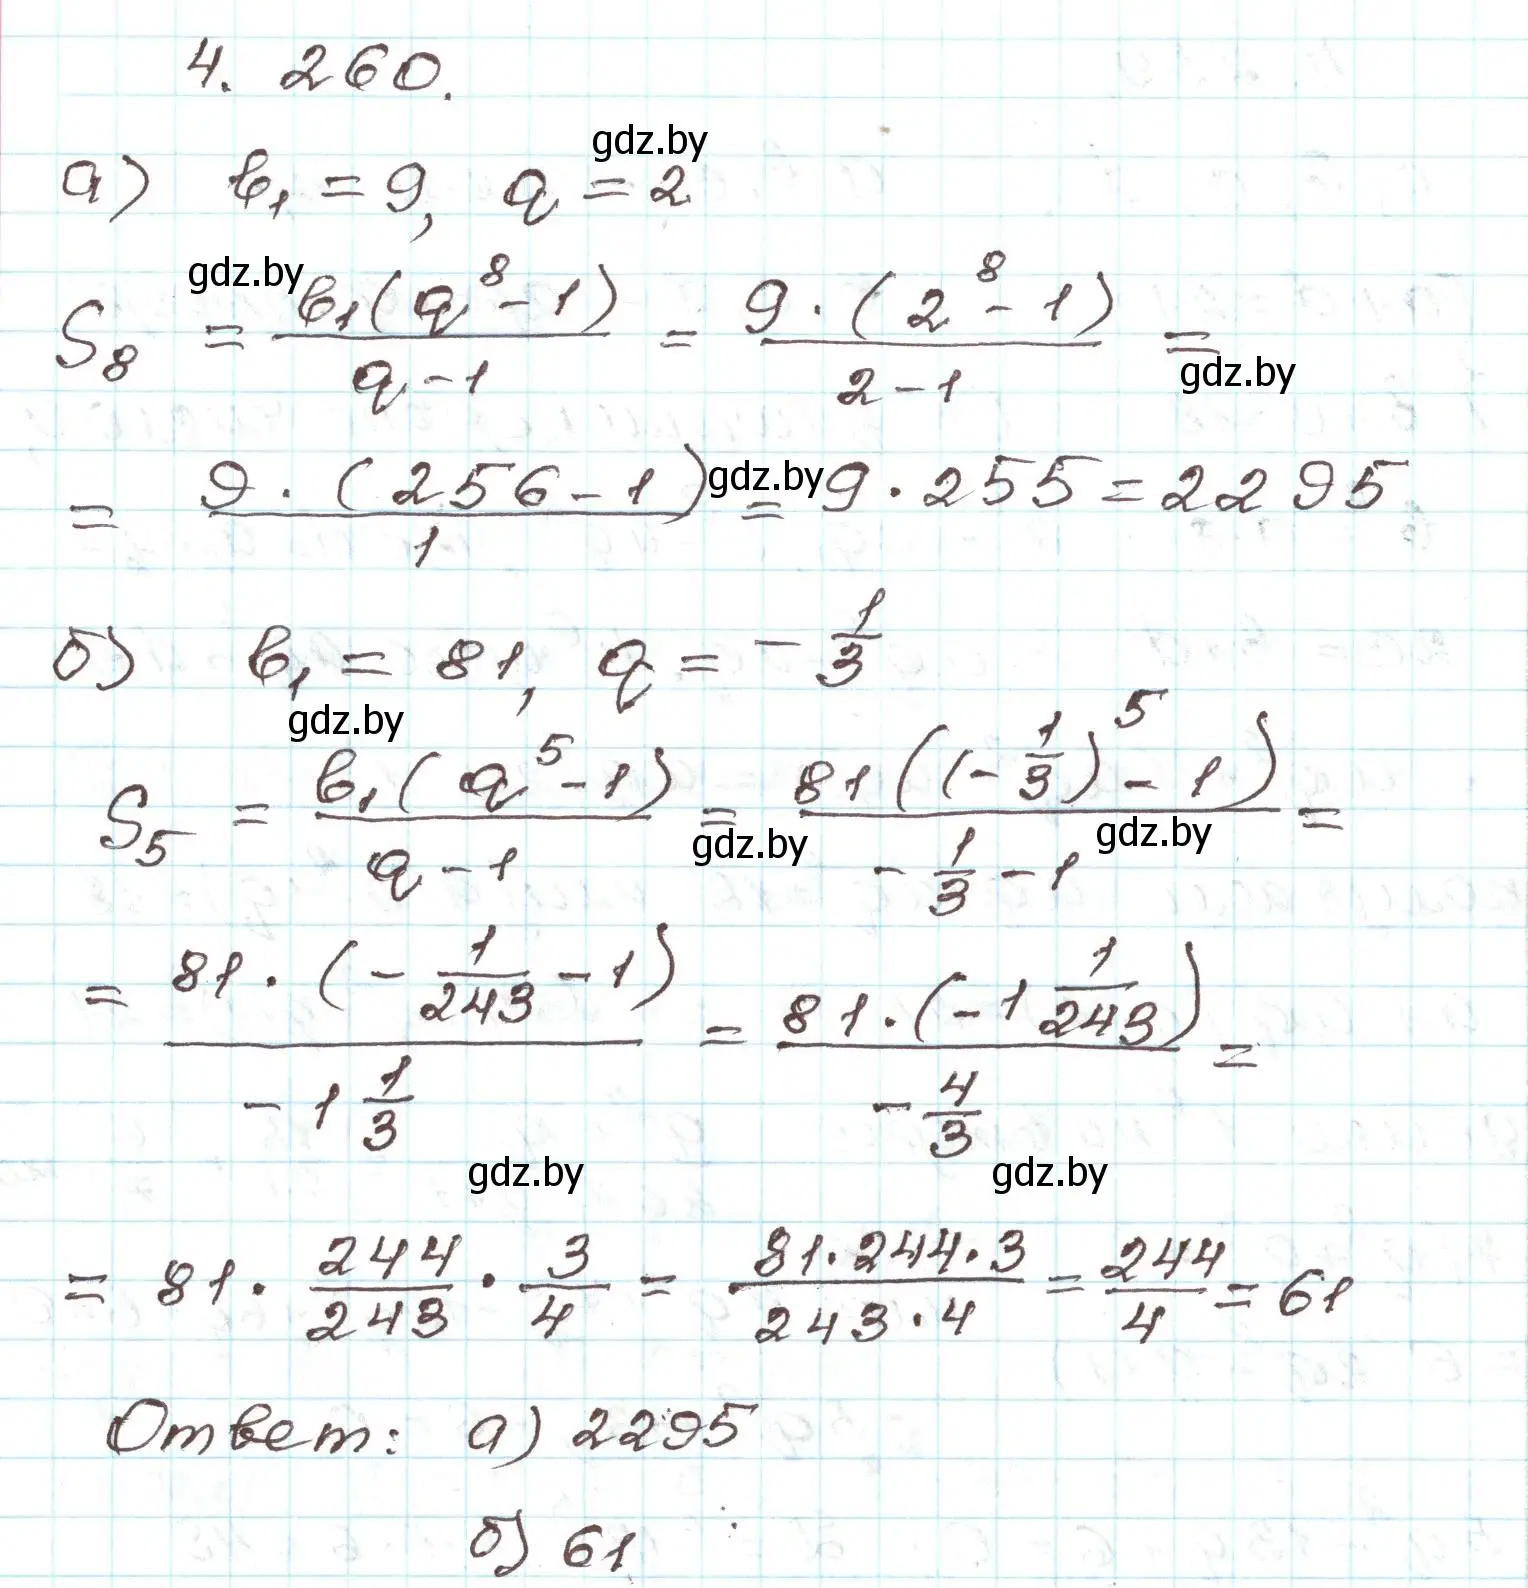 4. 260.
gdz.by
а) b₁ = 9, q = 2
gdz.by
S₈ = b₁(q⁸ - 1) / (q - 1) = 9 · (2⁸ - 1) / (2 - 1) =
gdz.by
= 9 · (256 - 1) / 1 = 9 · 255 = 2295
gdz.by
б) b₁ = 81, q = - 1/3
gdz.by
S₅ = b₁(q⁵ - 1) / (q - 1) = 81((- 1/3)⁵ - 1) / (- 1/3 - 1) =
gdz.by gdz.by
= 81 · (- 1/243 - 1) / (- 1 1/3) = 81 · (- 1 1/243) / (- 4/3) =
gdz.by gdz.by
= 81 · 244/243 · 3/4 = 81 · 244 · 3 / (243 · 4) = 244/4 = 61
Ответ: а) 2295
б) 61